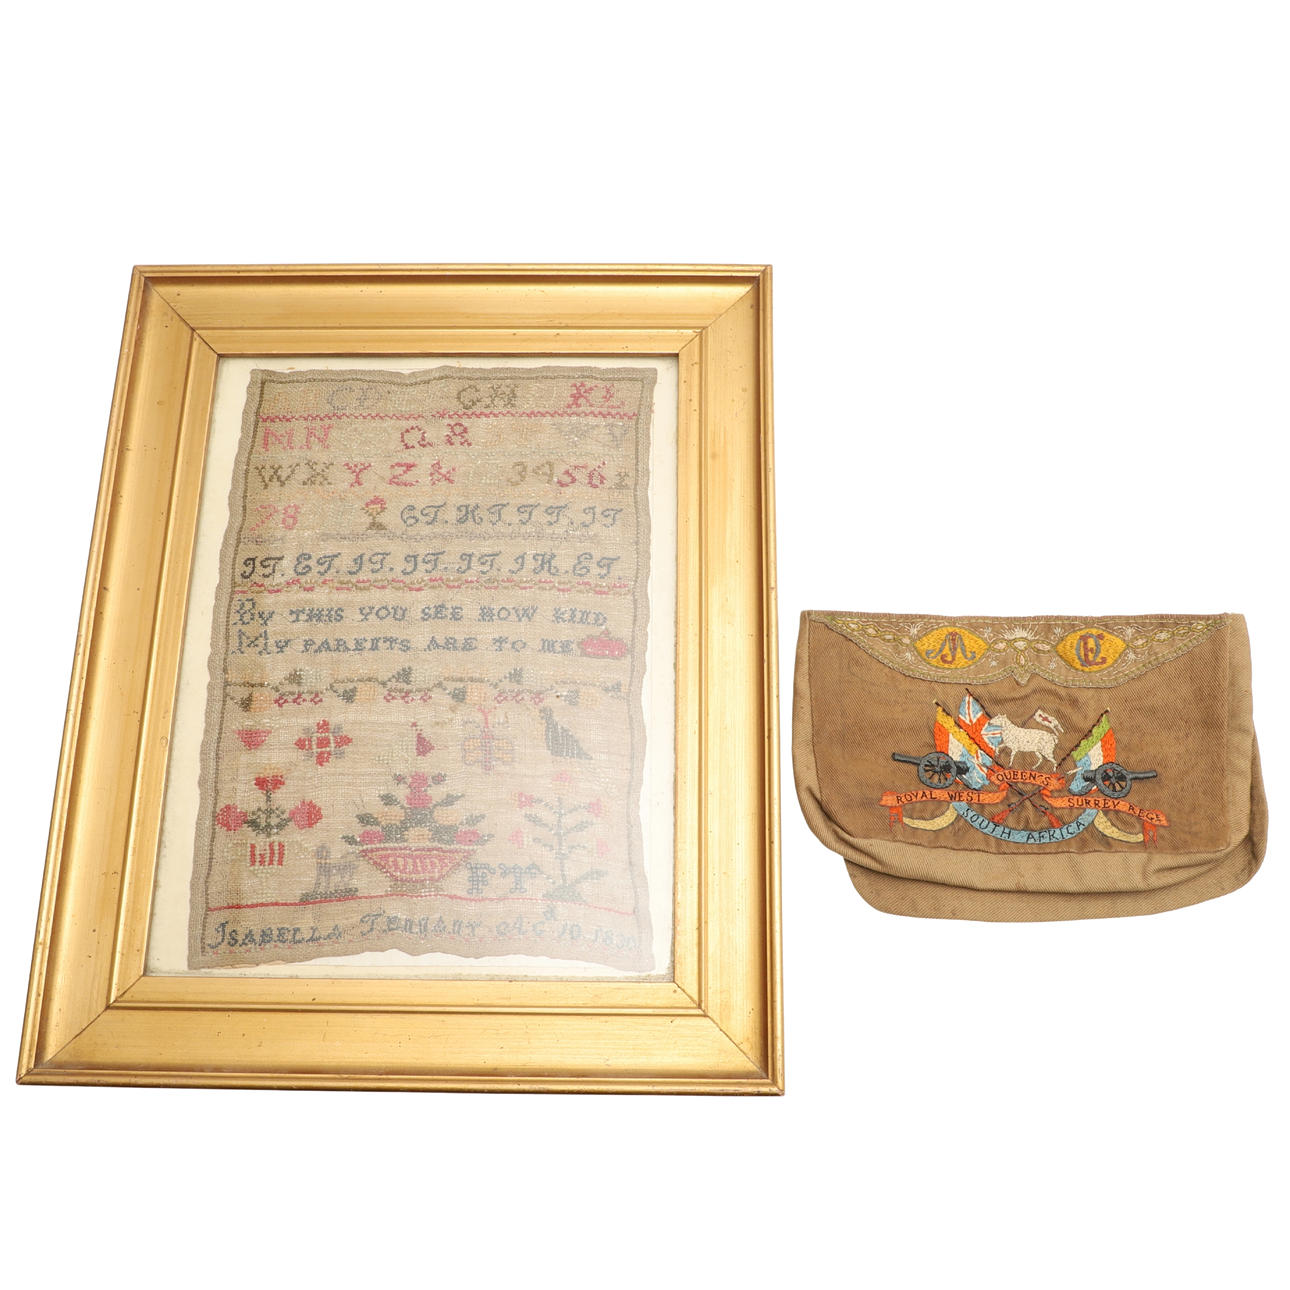 CD GH KL
MN QR UV
WXYZ& 3456
78 GT. HT. TT. JT
JT. ET. JT. JT. JT. JH. ET
BY THIS YOU SEE HOW KIND
MY PARENTS ARE TO ME
ISABELLA TENNANT AG 10 1830
QUEEN'S
ROYAL WEST SURREY REGT
SOUTH AFRICA